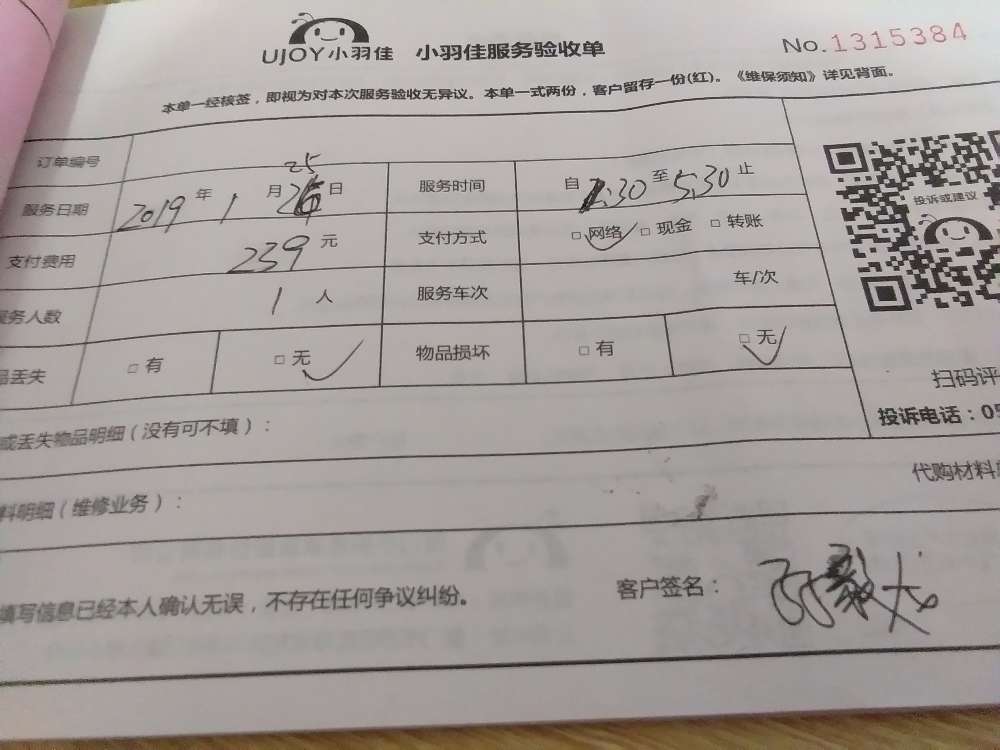 UJOY小羽佳 小羽佳服务验收单 No.1315384
本单一经核签，即视为对本次服务验收无异议。本单一式两份，客户留存一份(红)。《维保须知》详见背面。
订单编号
服务日期 2019年1月25日 服务时间 自 :30至5:30止
投诉或建议
支付费用 239元 支付方式 □网络 □现金 □转账
务人数 1人 服务车次 车/次
品丢失 □有 □无 物品损坏 □有 □无
扫码评
投诉电话：05
或丢失物品明细（没有可不填）：
代购材料
料明细（维修业务）：
填写信息已经本人确认无误，不存在任何争议纠纷。 客户签名：